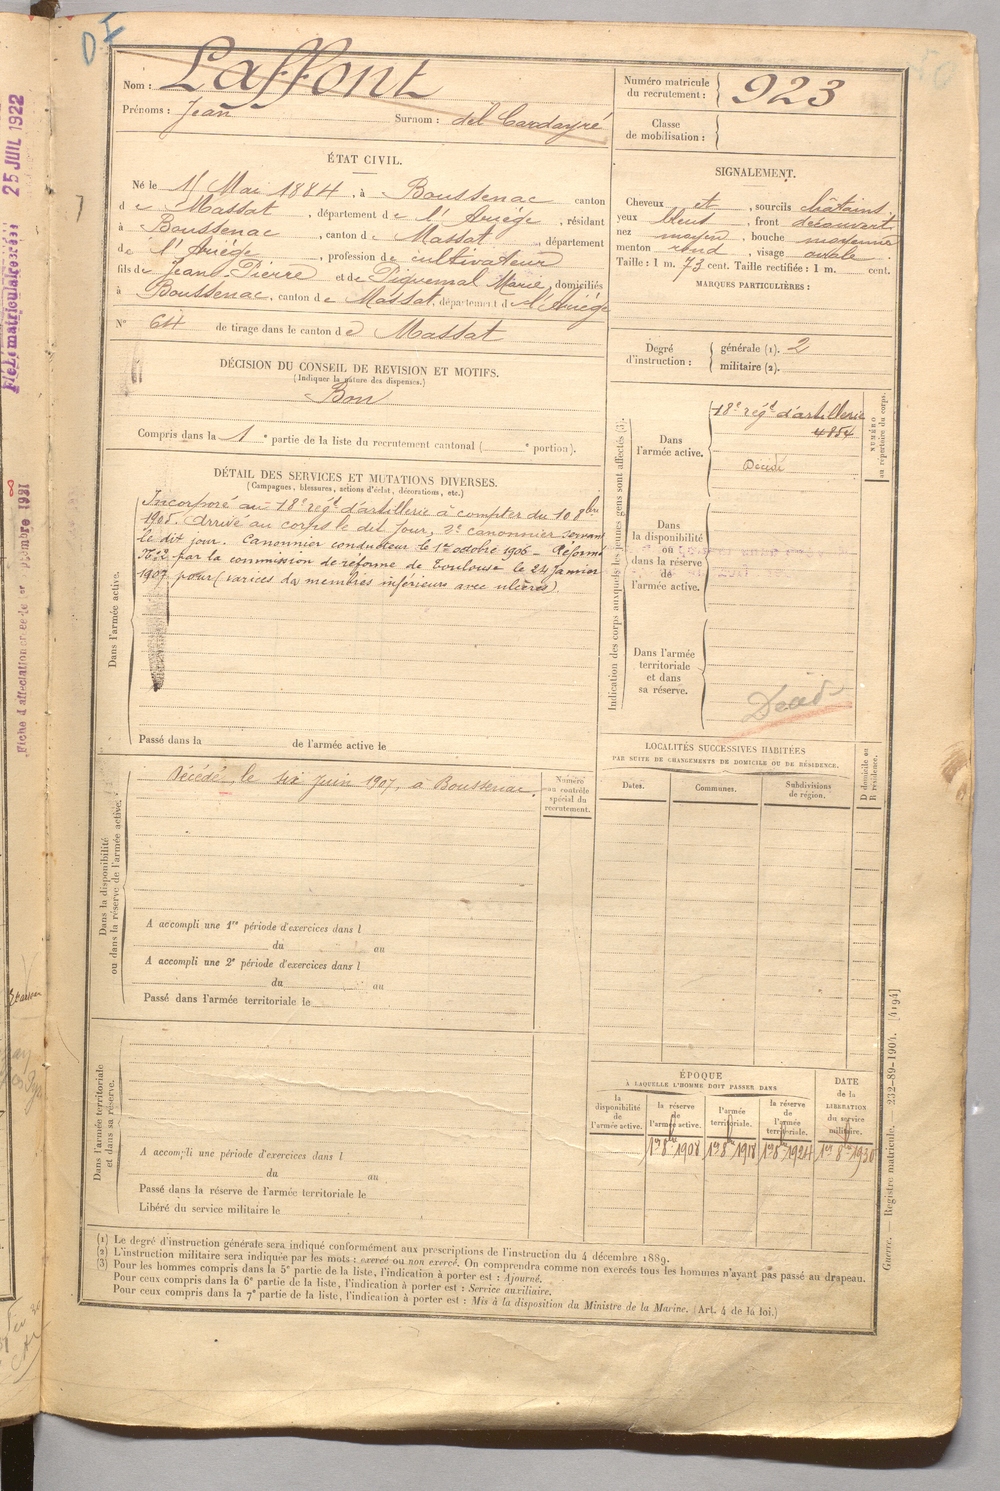 DI
Nom : Laffont
Prénoms : Jean Surnom : del Cardayré
Numéro matricule du recrutement : 923
Classe de mobilisation :
ÉTAT CIVIL.
Né le 11 Mai 1884, à Boussenac canton
de Massat, département de l'Ariège, résidant
à Boussenac, canton de Massat, département
de l'Ariège, profession de cultivateur
fils de Jean Pierre et de Piquemal Marie, domiciliés
à Boussenac, canton de Massat, département de l'Ariège
N° 64 de tirage dans le canton de Massat
SIGNALEMENT.
Cheveux et, sourcils châtains,
yeux bleus, front découvert,
nez moyen, bouche moyenne
menton rond, visage ovale
Taille : 1 m. 73 cent. Taille rectifiée : 1 m. cent.
MARQUES PARTICULIÈRES :
Degré d'instruction : générale (1). 2
militaire (2).
DÉCISION DU CONSEIL DE REVISION ET MOTIFS.
(Indiquer la nature des dispenses.)
Bon
Compris dans la 1e partie de la liste du recrutement cantonal ( e portion).
DÉTAIL DES SERVICES ET MUTATIONS DIVERSES.
(Campagnes, blessures, actions d'éclat, décorations, etc.)
Dans l'armée active.
Incorporé au 18e régt d'artillerie à compter du 10 8bre
1905. Arrivé au corps le dit jour, 2e canonnier servant
le dit jour. Canonnier conducteur le 1er octobre 1906 - Réformé
N° 2 par la commission de réforme de Toulouse le 24 Janvier
1907 pour (varices des membres inférieurs avec ulcères).
Passé dans la de l'armée active le
Indication des corps auxquels les jeunes gens sont affectés (3).
Dans l'armée active.
18e régt d'artillerie
4854
Décédé
NUMÉRO au répertoire du corps.
Dans la disponibilité ou dans la réserve de l'armée active.
Dans l'armée territoriale et dans sa réserve.
Décédé
Dans la disponibilité ou dans la réserve de l'armée active.
Décédé le six juin 1907, à Boussenac.
Numéro au contrôle spécial du recrutement.
A accompli une 1re période d'exercices dans l
du au
A accompli une 2e période d'exercices dans l
du au
Passé dans l'armée territoriale le
LOCALITÉS SUCCESSIVES HABITÉES
PAR SUITE DE CHANGEMENTS DE DOMICILE OU DE RÉSIDENCE.
Dates. Communes. Subdivisions de région. D domicile ou R résidence.
Dans l'armée territoriale et dans sa réserve.
A accompli une période d'exercices dans l
du au
Passé dans la réserve de l'armée territoriale le
Libéré du service militaire le
ÉPOQUE
À LAQUELLE L'HOMME DOIT PASSER DANS
la disponibilité de l'armée active. la réserve de l'armée active. l'armée territoriale. la réserve de l'armée territoriale. DATE de la LIBÉRATION du service militaire.
1er 8bre 1908 1er 8bre 1918 1er 8bre 1924 1er 8bre 1930
(1) Le degré d'instruction générale sera indiqué conformément aux prescriptions de l'instruction du 4 décembre 1889.
(2) L'instruction militaire sera indiquée par les mots : exercé ou non exercé. On comprendra comme non exercés tous les hommes n'ayant pas passé au drapeau.
(3) Pour les hommes compris dans la 5e partie de la liste, l'indication à porter est : Ajourné.
Pour ceux compris dans la 6e partie de la liste, l'indication à porter est : Service auxiliaire.
Pour ceux compris dans la 7e partie de la liste, l'indication à porter est : Mis à la disposition du Ministre de la Marine. (Art. 4 de la loi.)
Guerre. Registre matricule. 232-89-1904. [4194]
25 JUIL 1922